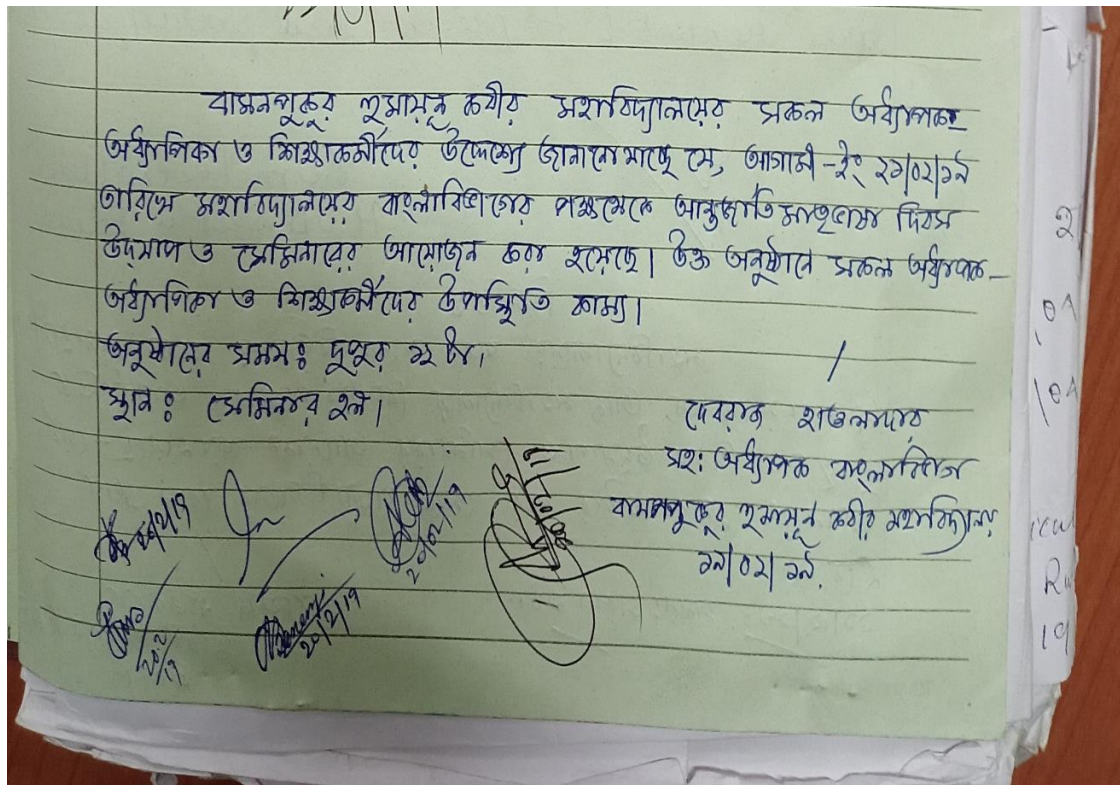 বামনপুকুর হুমায়ূন কবীর মহাবিদ্যালয়ের সকল অধ্যাপক-
অধ্যাপিকা ও শিক্ষাকর্মীদের উদ্দেশ্যে জানানো যাচ্ছে যে, আগামী -ইং ২১/০২/১৯
তারিখে মহাবিদ্যালয়ের বাংলা বিভাগের পক্ষ থেকে আন্তর্জাতি মাতৃভাষা দিবস
উদযাপ ও সেমিনারের আয়োজন করা হয়েছে। উক্ত অনুষ্ঠানে সকল অধ্যাপক-
অধ্যাপিকা ও শিক্ষাকর্মীদের উপস্থিতি কাম্য।
অনুষ্ঠানের সময়ঃ দুপুর ১২ টা।
স্থানঃ সেমিনার হল।
দেবরাজ হাওলাদার
সহঃ অধ্যাপক বাংলা বিভাগ
বামনপুকুর হুমায়ূন কবীর মহাবিদ্যালয়
১৯/০২/১৯.
20/2/19
20/02/19
20/2/19